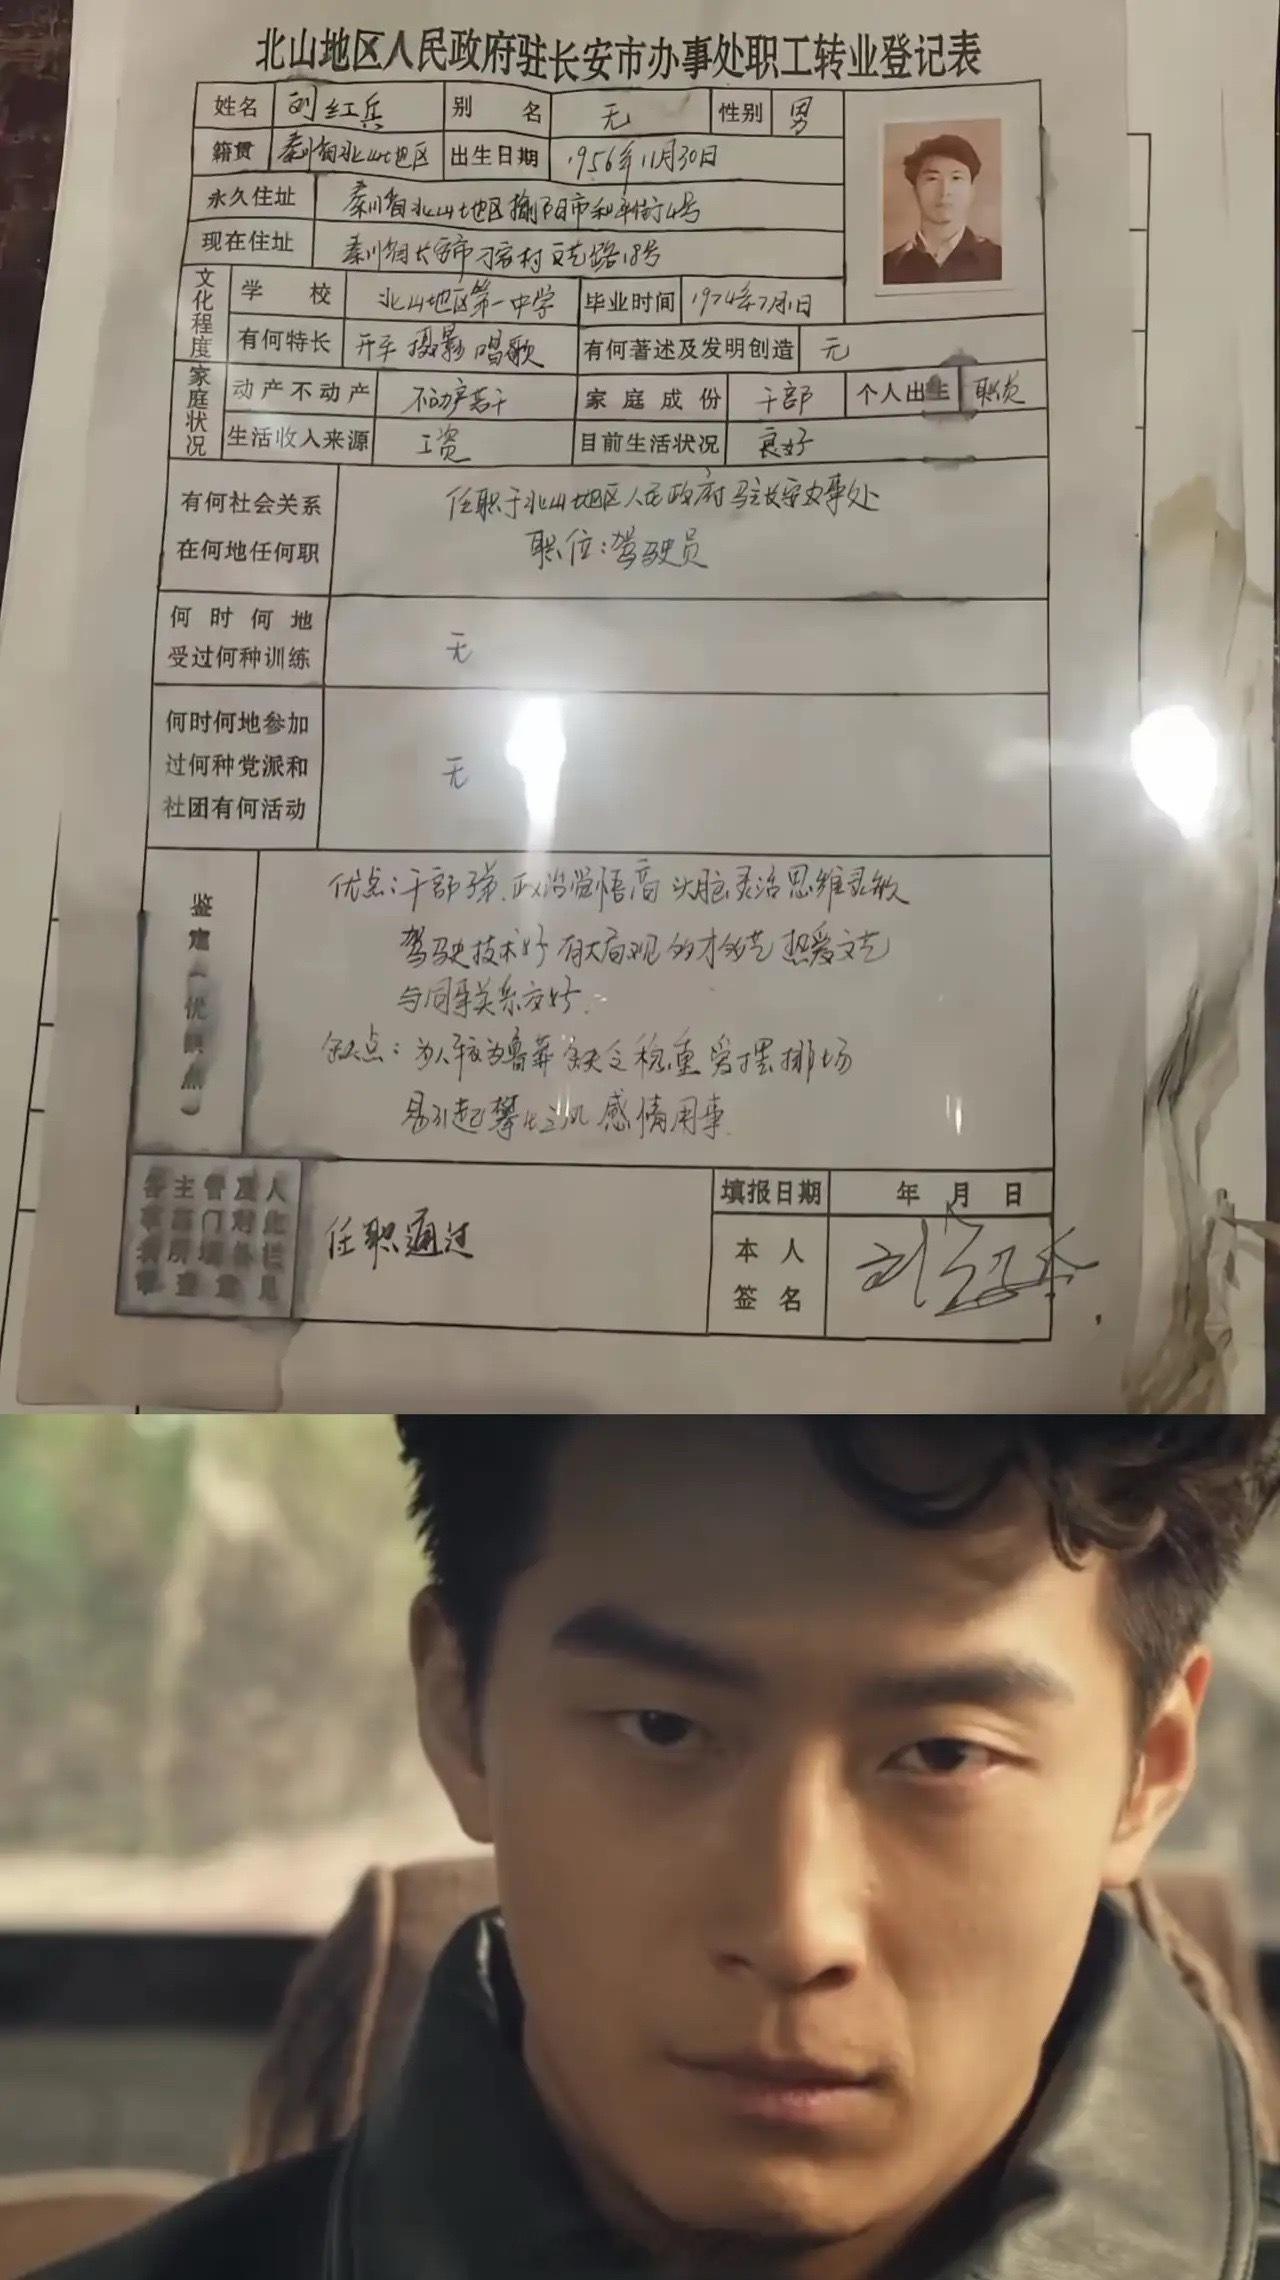 北山地区人民政府驻长安市办事处职工转业登记表
姓名 刘红兵 别名 无 性别 男
籍贯 秦川省北山地区 出生日期 1956年11月30日
永久住址 秦川省北山地区榆阳市和平街4号
现在住址 秦川省长安市刁家村文艺路18号
文化程度 学校 北山地区第一中学 毕业时间 1974年7月1日
有何特长 开车 摄影 唱歌 有何著述及发明创造 无
家庭状况 动产不动产 不动产若干 家庭成份 干部 个人出生 职员
生活收入来源 工资 目前生活状况 良好
有何社会关系
在何地任何职
任职于北山地区人民政府驻长安办事处
职位：驾驶员
何时何地
受过何种训练
无
何时何地参加
过何种党派和
社团有何活动
无
鉴定 优缺点
优点：干部子弟.政治觉悟高 头脑灵活思维灵敏
驾驶技术好 有大局观 多才多艺 热爱文艺
与同事关系友好.
缺点：为人行为鲁莽 缺乏稳重 爱摆排场
易引起攀比之风 感情用事.
任职通过
填报日期 年 月 日
本人
签名
刘红兵